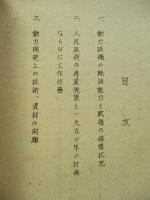 目次
一、動力設備の既設能力と戦後の損壊状況
二、人民政府の再建施策と一九五〇年の計画
ならびに工作任務
三、動力開発上の技術、資材の問題